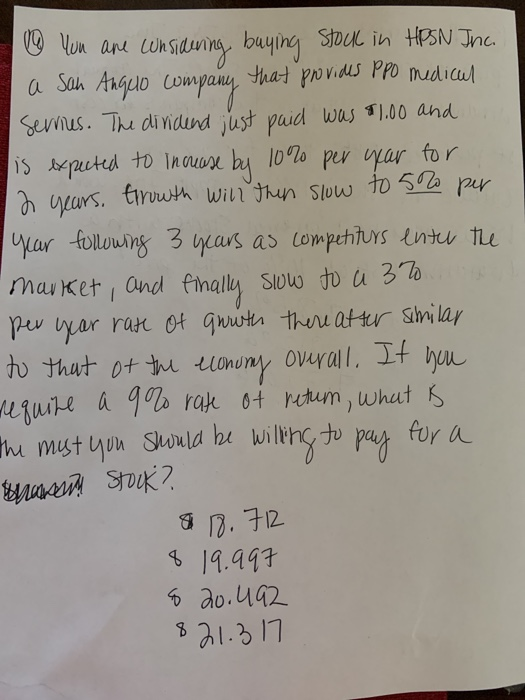 18 You are considering buying stock in HPSN Inc.
a San Angelo company that provides PPO medical
services. The dividend just paid was $1.00 and
is expected to increase by 10% per year for
2 years. Growth will then slow to 5% per
year following 3 years as competitors enter the
market, and finally slow to a 3%
per year rate of growth thereafter similar
to that of the economy overall. If you
require a 9% rate of return, what is
the most you should be willing to pay for a
stock?
$ 18.712
$ 19.997
$ 20.492
$ 21.317